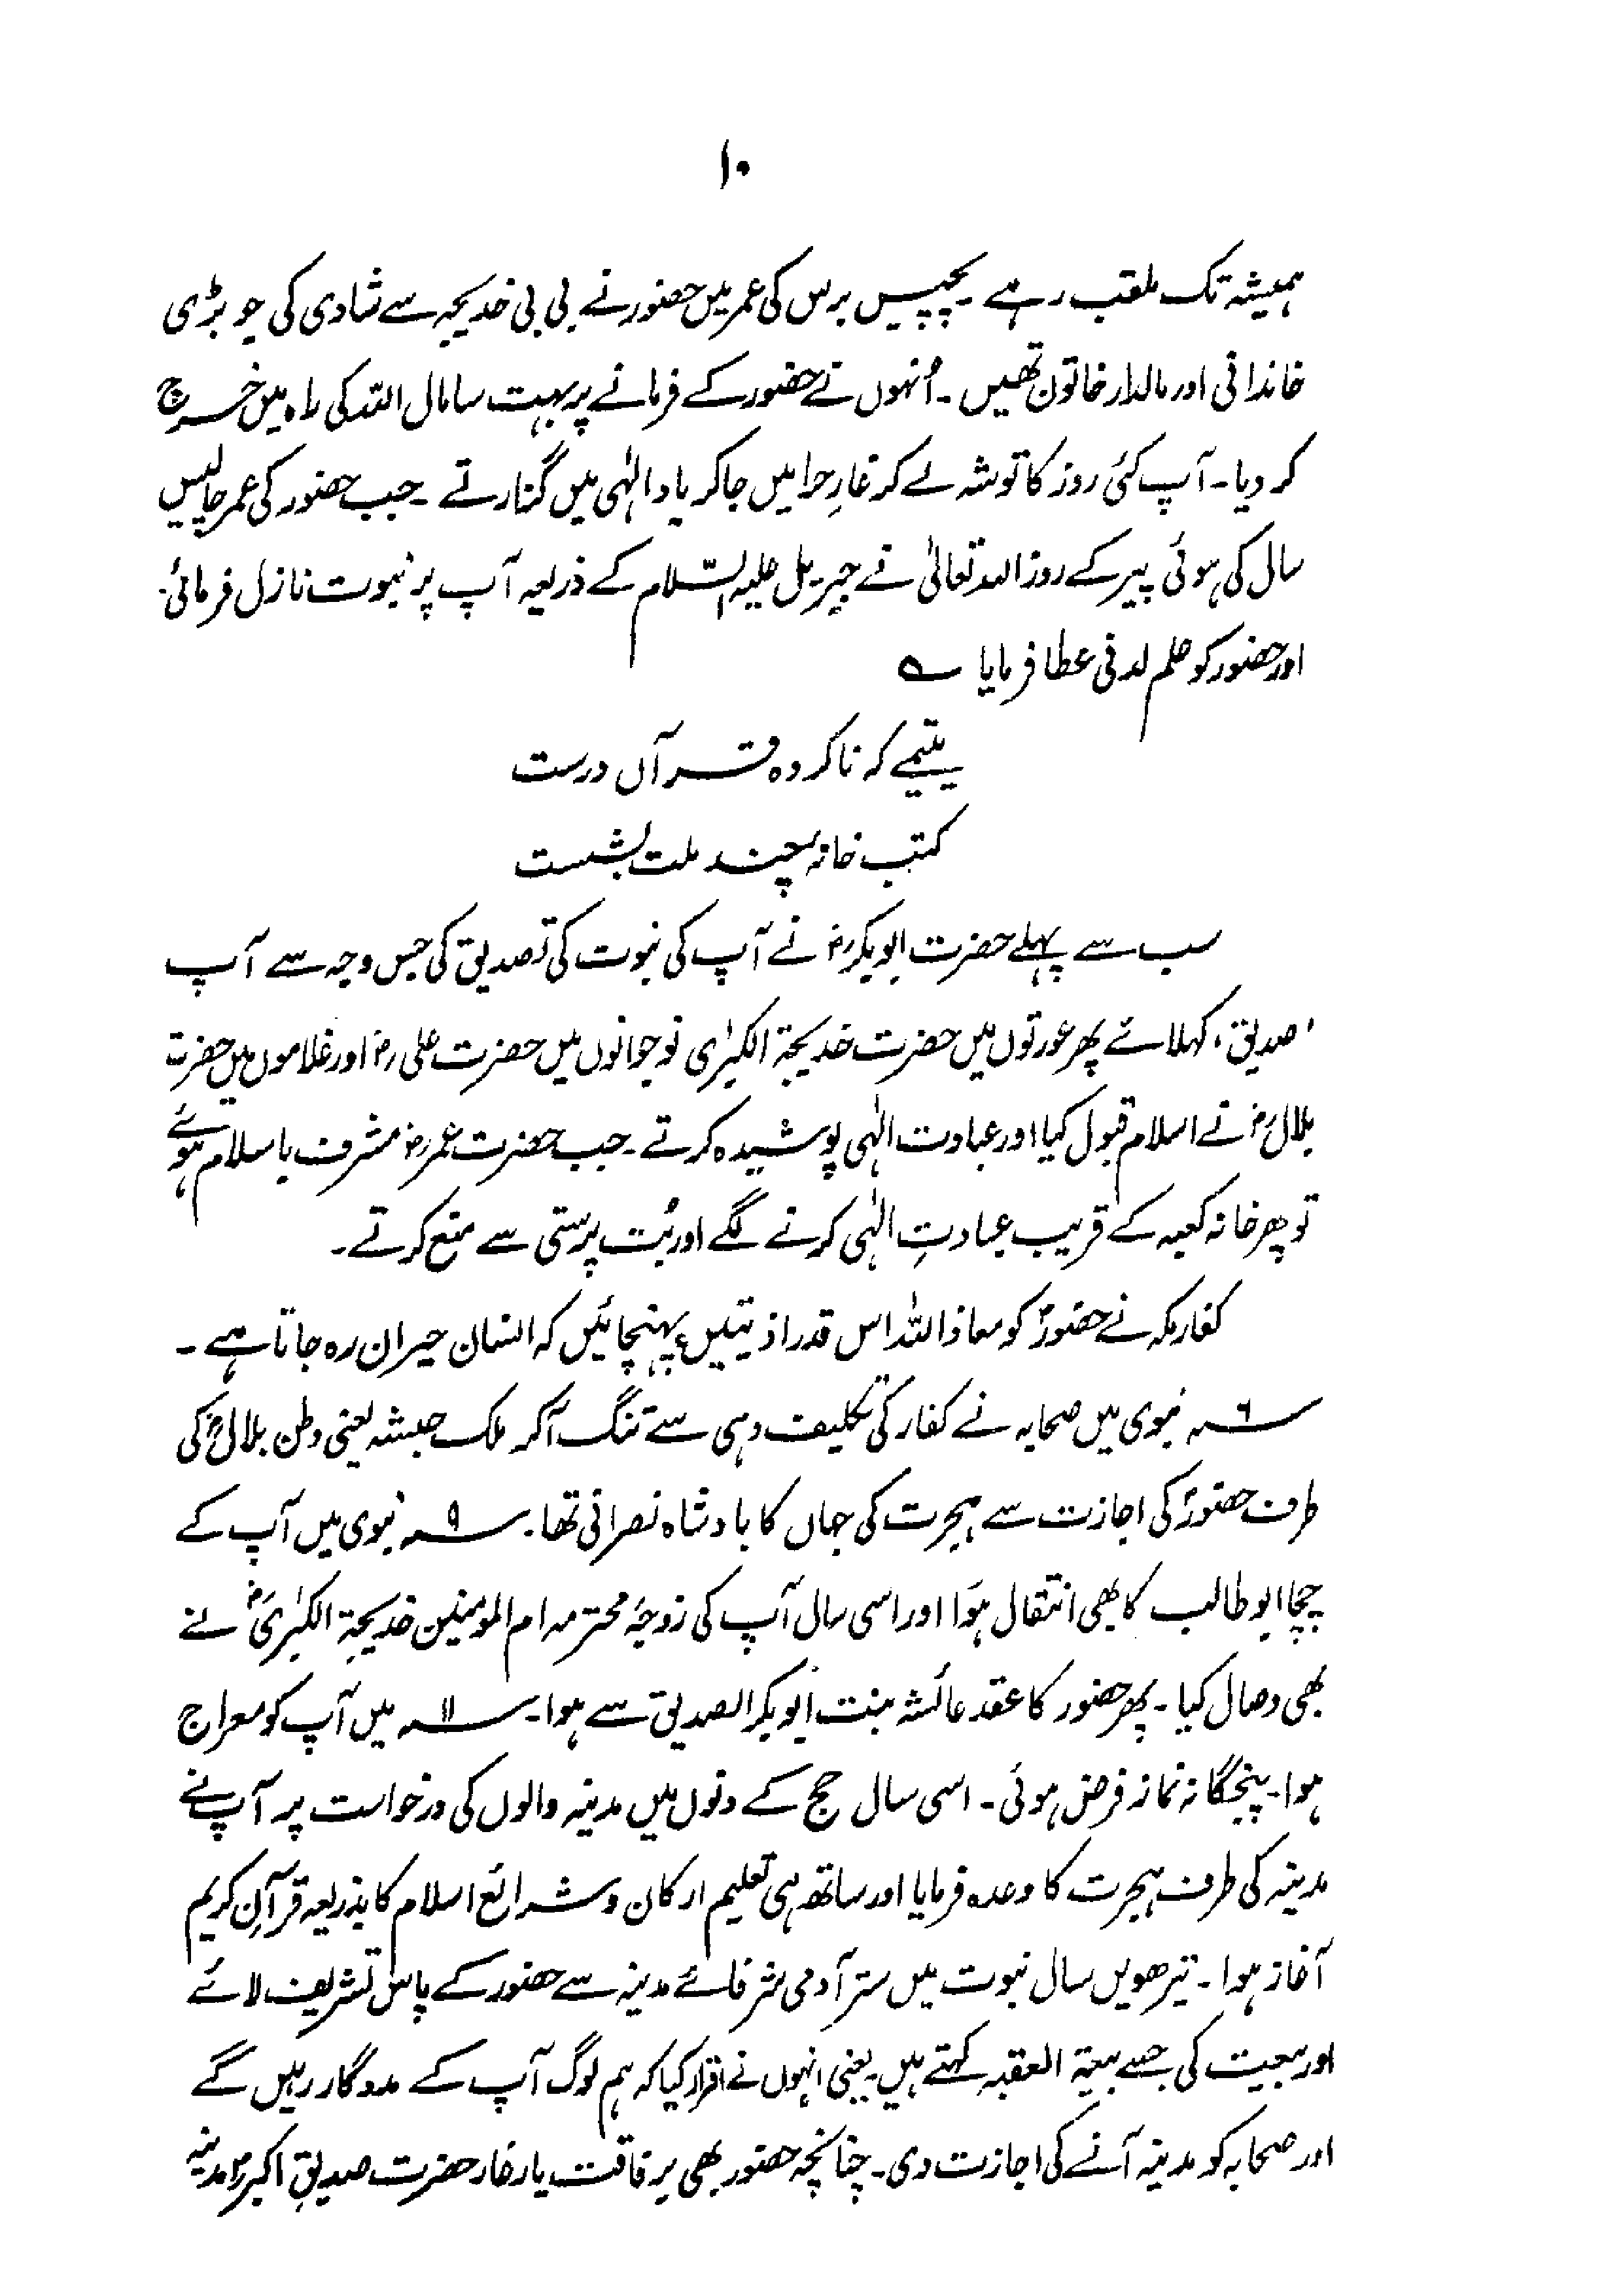 ۱۰
ہمیشہ تک ملقب رہے۔ پچیس برس کی عمر میں حضور نے بی بی خدیجہ سے شادی کی جو بڑی
خاندانی اور مالدار خاتون تھیں۔ اُنہوں نے حضور کے فرمانے پر بہت سا مال اللہ کی راہ میں خرچ
کر دیا۔ آپ کئی روز کا توشہ لے کر غارِ حرا میں جا کر یاد الٰہی میں گذارتے۔ جب حضور کی عمر چالیس
سال کی ہوئی پیر کے روز اللہ تعالیٰ نے جبریل علیہ السّلام کے ذریعہ آپ پر نبوت نازل فرمائی۔
اور حضور کو علم لدنی عطا فرمایا ؎
یتیمے کہ ناکردہ قرآں درست
کتب خانہ چند ملت بشست
سب سے پہلے حضرت ابوبکرؓ نے آپ کی نبوت کی تصدیق کی جس وجہ سے آپ
'صدیق' کہلائے پھر عورتوں میں حضرت خدیجۃ الکبریٰ نوجوانوں میں حضرت علیؓ اور غلاموں میں حضرت
بلالؓ نے اسلام قبول کیا اور عبادت الٰہی پوشیدہ کرتے۔ جب حضرت عمرؓ مشرف باسلام ہوئے
تو پھر خانہ کعبہ کے قریب عبادتِ الٰہی کرنے لگے اور بُت پرستی سے منع کرتے۔
کفار مکہ نے حضورؐ کو معاذ اللہ اس قدر اذیتیں پہنچائیں کہ انسان حیران رہ جاتا ہے۔
۶؁ نبوی میں صحابہ نے کفار کی تکلیف دہی سے تنگ آکر ملک حبشہ یعنی وطن بلالؓ کی
طرف حضورؐ کی اجازت سے ہجرت کی جہاں کا بادشاہ نصرانی تھا۔ ۹؁ نبوی میں آپ کے
چچا ابو طالب کا بھی انتقال ہوَا اور اسی سال آپ کی زوجۂ محترمہ ام المومنین خدیجۃ الکبریٰؓ نے
بھی وصال کیا۔ پھر حضور کا عقد عائشہ بنت ابوبکر الصدیق سے ہوا۔ ۱۱؁ میں آپ کو معراج
ہوا۔ پنجگانہ نماز فرض ہوئی۔ اسی سال حج کے دنوں میں مدینہ والوں کی درخواست پر آپ نے
مدینہ کی طرف ہجرت کا وعدہ فرمایا اور ساتھ ہی تعلیم ارکان و شرائع اسلام کا بذریعہ قرآنِ کریم
آغاز ہوا۔ تیرھویں سال نبوت میں ستر آدمی شرفائے مدینہ سے حضور کے پاس تشریف لائے
اور بیعت کی جسے بیعۃ العقبہ کہتے ہیں۔ یعنی انہوں نے اقرار کیا کہ ہم لوگ آپ کے مددگار رہیں گے
اور صحابہ کو مدینہ آنے کی اجازت دی۔ چنانچہ حضور بھی برفاقت یار غار حضرت صدیقِ اکبرؓ مدینہ